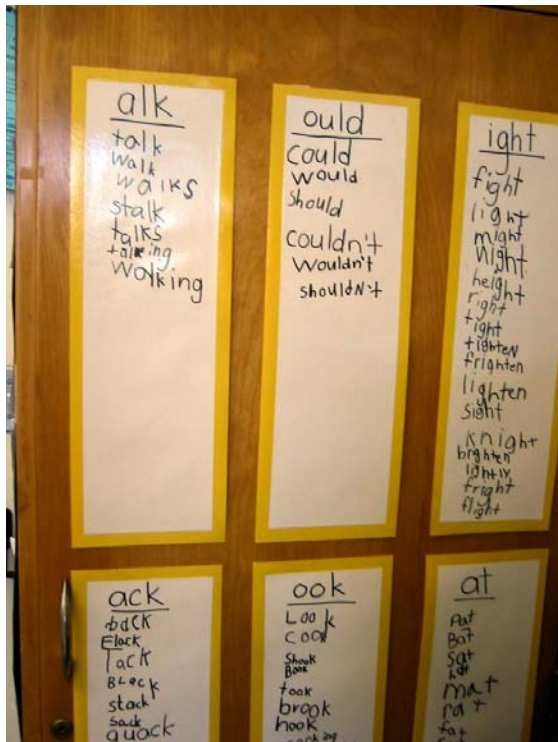 alk
talk
walk
walks
stalk
talks
talking
walking
ould
could
would
should
couldn't
wouldn't
shouldN't
ight
fight
light
might
Night
height
right
tight
tighteN
frighten
lighten
sight
knight
brighten
fright
flight
ack
back
Tack
BLack
stack
Sack
quack
ook
LOOk
COOK
Shook
Book
took
brook
hook
at
Pat
Bat
Sat
hat
mat
rat
fat